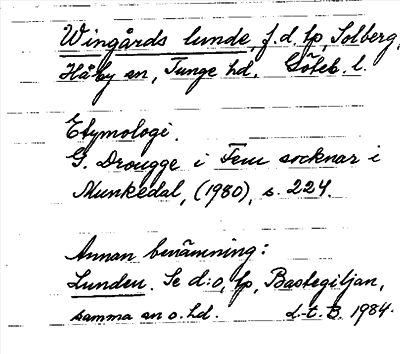 Wingårds lunde, f.d. lp, Solberg,
Håby sn, Tunge hd. Göteb. l.
Etymologi.
G. Drougge i Fem socknar i
Munkedal, (1980), s. 224.
Annan benämning:
Lunden. Se d:o, lp, Bastegiljan,
samma sn o. hd. L-t. B. 1984.